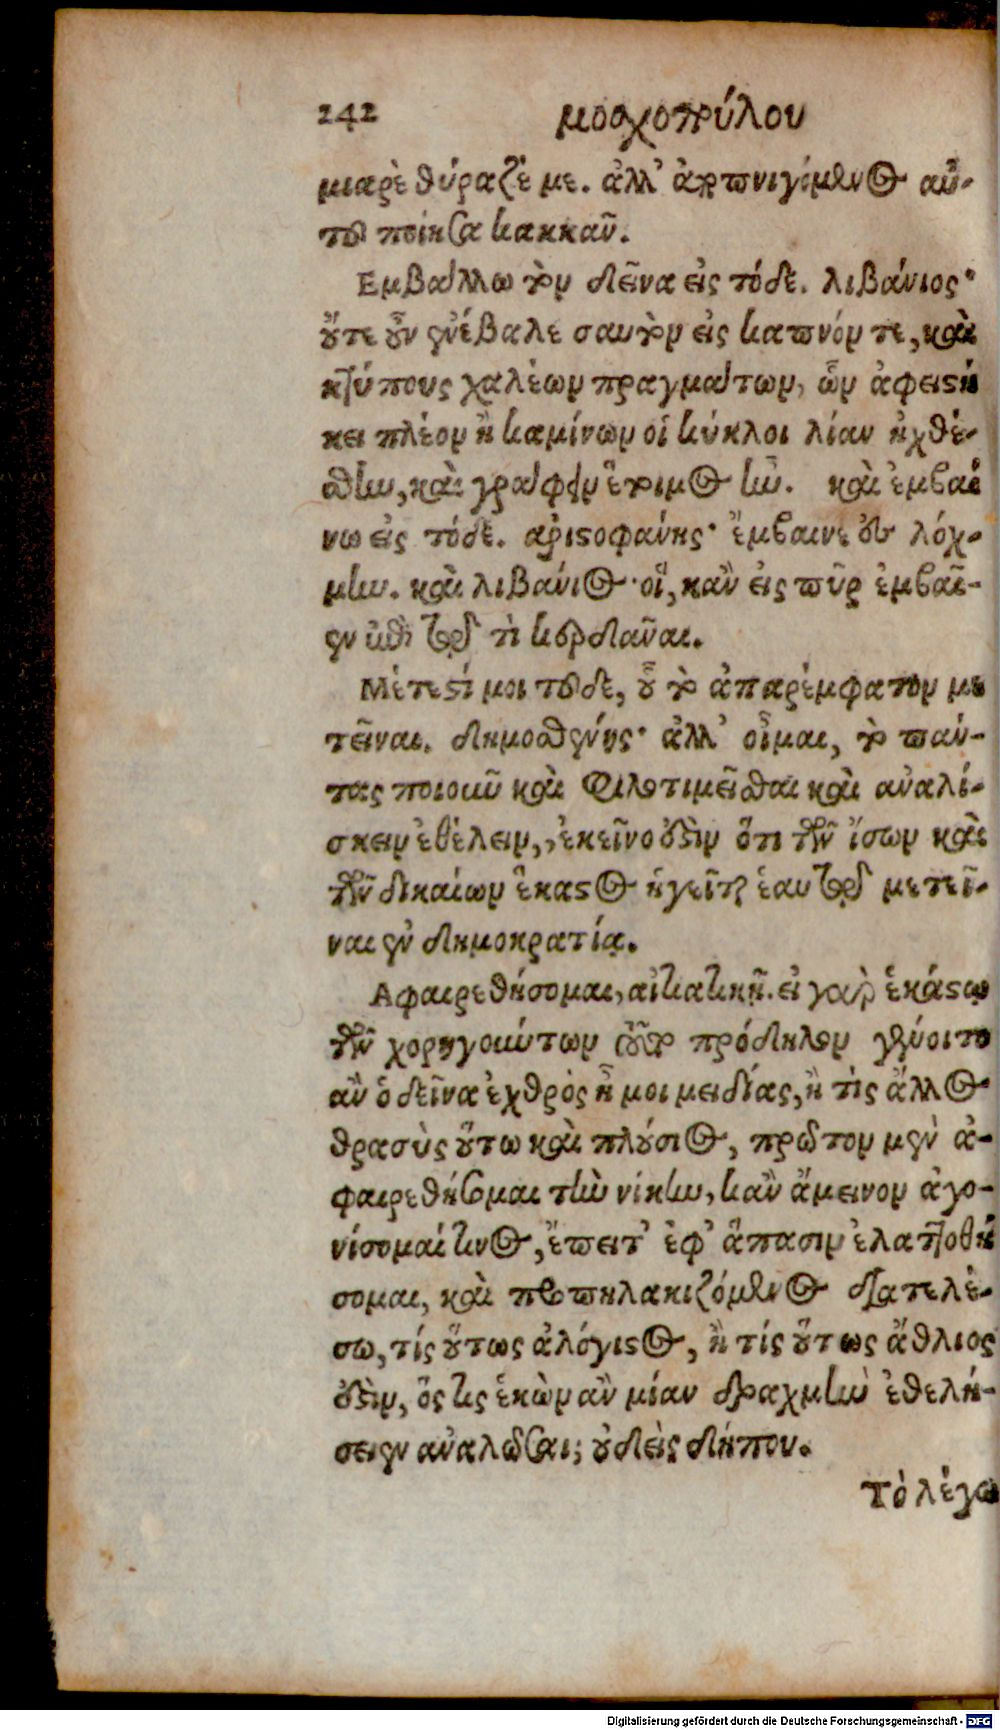 242 μοσχοπούλου
μιαρὲ θύραζέ με. ἀλλ' ἀποπνιγόμενος αὐ-
τοῦ ποίησα κακκᾶν.
Εμβάλλω τὸν δεῖνα εἰς τόδε. λιβάνιος·
οὔτε οὖν ἐνέβαλε σαυτὸν εἰς καπνόν τε, καὶ
κτύπους χαλέων πραγμάτων, ὧν ἀφειστή
κει πλέον ἢ καμίνων οἱ κύκλοι λίαν ἠχθέ-
σθην, καὶ γράφειν ἕτοιμος ἦν. καὶ ἐμβαί
νω εἰς τόδε. ἀριστοφάνης· ἔμβαινε λόχ-
μην. καὶ λιβάνιος· οἵ, κἂν εἰς πῦρ ἐμβαῖ-
εν ἐπὶ τῷ τὶ κερδᾶναι.
Μέτεστί μοι τοῦδε, οὗ τὸ ἀπαρέμφατον με
τεῖναι. δημοσθένης· ἀλλ' οἶμαι, τὸ πάν-
τας ποιοῦν καὶ φιλοτιμεῖσθαι καὶ ἀναλί-
σκειν ἐθέλειν, ἐκεῖνο ὅτι τῶν ἴσων καὶ
τῶν δικαίων ἕκαστος ἡγεῖται ἑαυτῷ μετεῖ-
ναι ἐν δημοκρατίᾳ.
Αφαιρεθήσομαι, αἰτιατικῇ. εἰ γὰρ ἑκάστῳ
τῶν χορηγούντων τοῦτο πρόδηλον γένοιτο
ἂν ὁ δεῖνα ἐχθρὸς ᾖ μοι μειδίας, ἢ τὶς ἄλλος
θρασὺς οὕτω καὶ πλούσιος, πρῶτον μὲν ἀ-
φαιρεθήσομαι τὴν νίκην, κἂν ἄμεινον ἀγο-
νίσομαί τινος, ἔπειτ' ἐφ' ἅπασιν ἐλαττοθή
σομαι, καὶ προπηλακιζόμενος διατελέ-
σω, τίς οὕτως ἀλόγιστος, ἢ τίς οὕτως ἄθλιος
ὅς τις ἑκὼν ἂν μίαν δραχμὴν ἐθελή-
σειεν ἀναλῶσαι; οὐδεὶς δήπου.
Τὸ λέγω
Digitalisierung gefördert durch die Deutsche Forschungsgemeinschaft - DFG